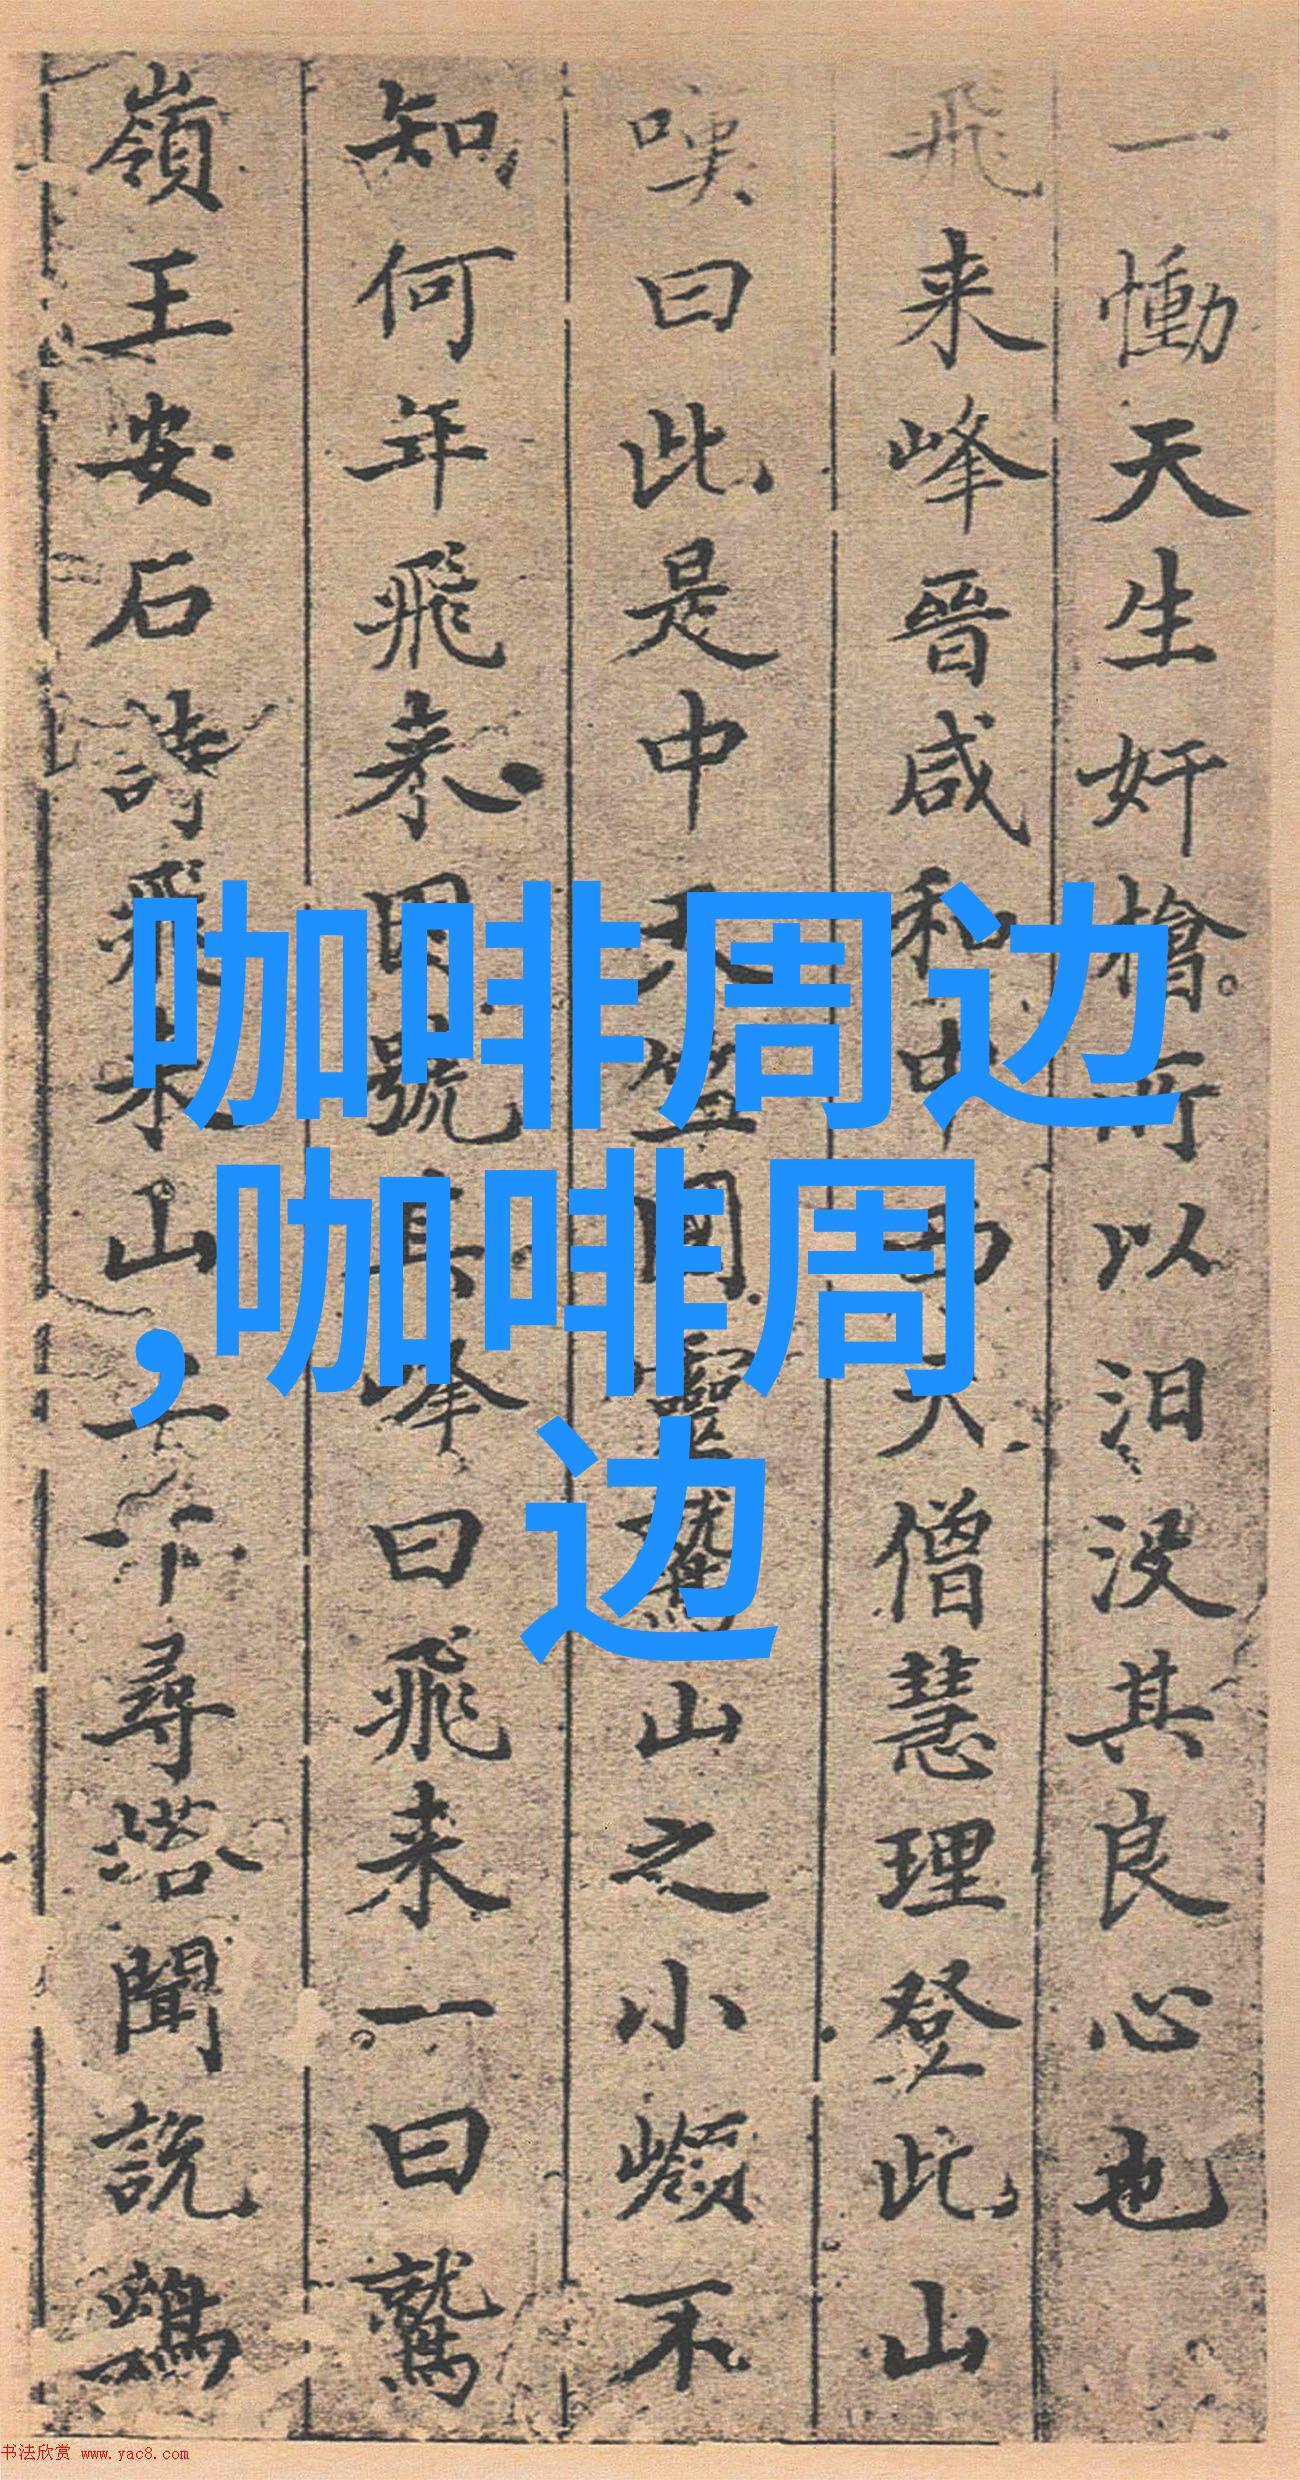 一慟天生奸檜所以汨没其良心也
飛来峰晉咸和中西天僧慧理登此山
嘆曰此是中天竺國靈鷲山之小嶺不
知何年飛来因號其峰曰飛来一曰鷲
嶺王安石詩飛来山上下尋塔聞說鷄
咖啡周边
,咖啡周
边
书法欣赏 www.yac8.com